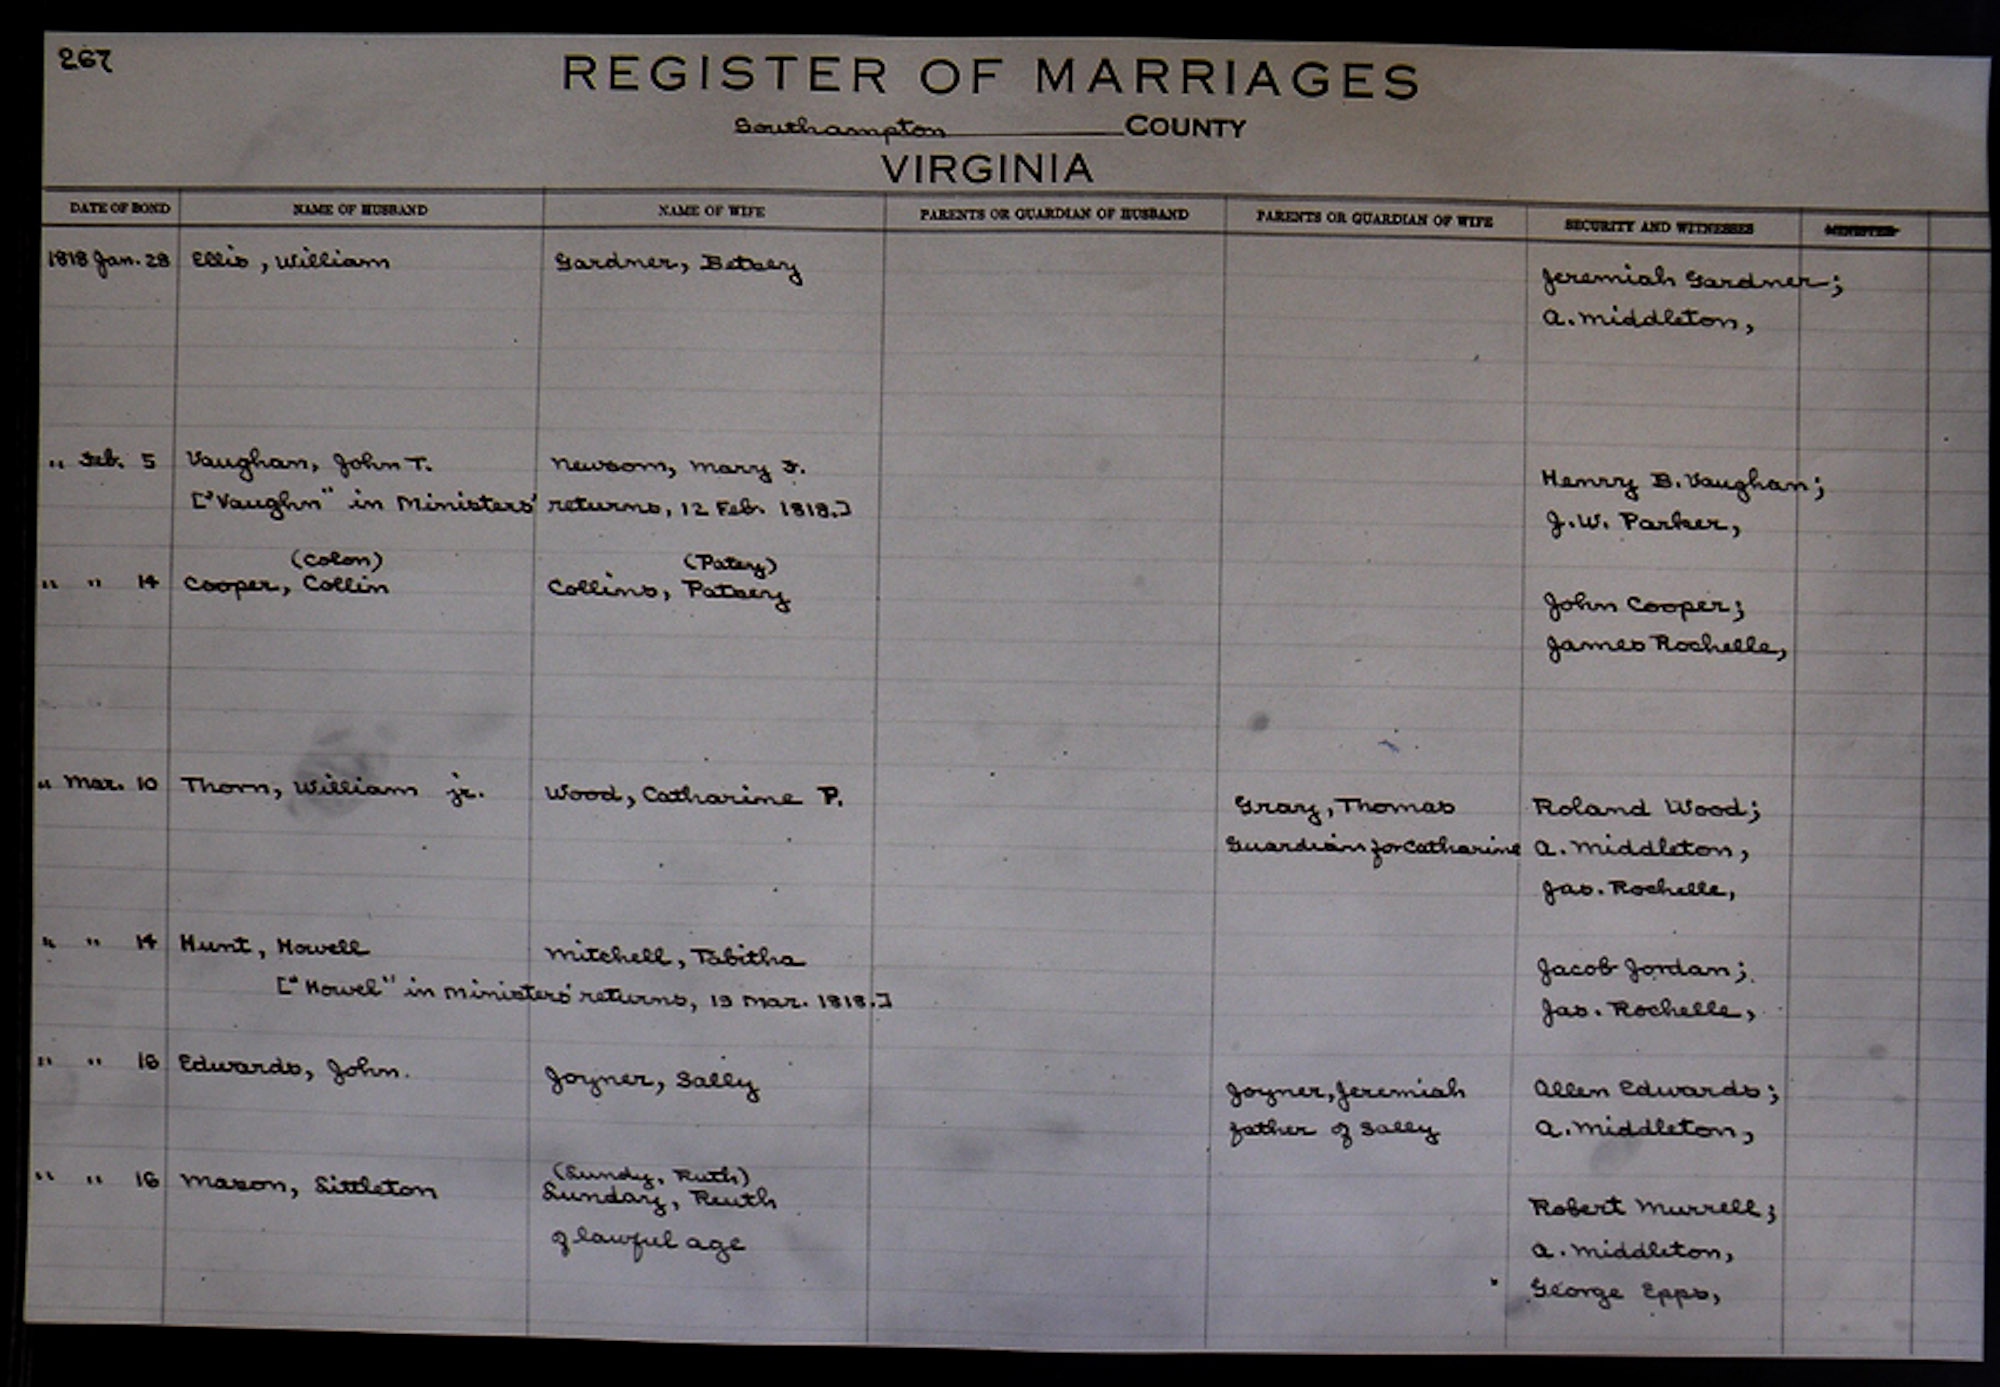 267
REGISTER OF MARRIAGES
Southampton COUNTY
VIRGINIA
DATE OF BOND NAME OF HUSBAND NAME OF WIFE PARENTS OR GUARDIAN OF HUSBAND PARENTS OR GUARDIAN OF WIFE SECURITY AND WITNESSES MINISTER
1818 Jan. 28 Ellis, William Gardner, Betsey
Jeremiah Gardner;
A. Middleton,
" Feb. 5 Vaughan, John T. Newsom, Mary F.
Henry B. Vaughan;
["Vaughn" in Ministers' returns, 12 Feb. 1818.]
J.W. Parker,
(Colon) (Patsy)
" " 14 Cooper, Collin Collins, Patsey
John Cooper;
James Rochelle,
" Mar. 10 Thorn, William jr. Wood, Catharine P. Gray, Thomas Roland Wood;
Guardian for Catharine A. Middleton,
Jas. Rochelle,
" " 14 Hunt, Howell Mitchell, Tabitha
Jacob Jordan;
["Howel" in Ministers' returns, 19 Mar. 1818.]
Jas. Rochelle,
" " 16 Edwards, John. Joyner, Sally
Joyner, Jeremiah Allen Edwards;
father of Sally A. Middleton,
(Lundy, Ruth)
" " 16 Mason, Littleton Lunday, Reuth
Robert Murrell;
of lawful age
A. Middleton,
George Epps,